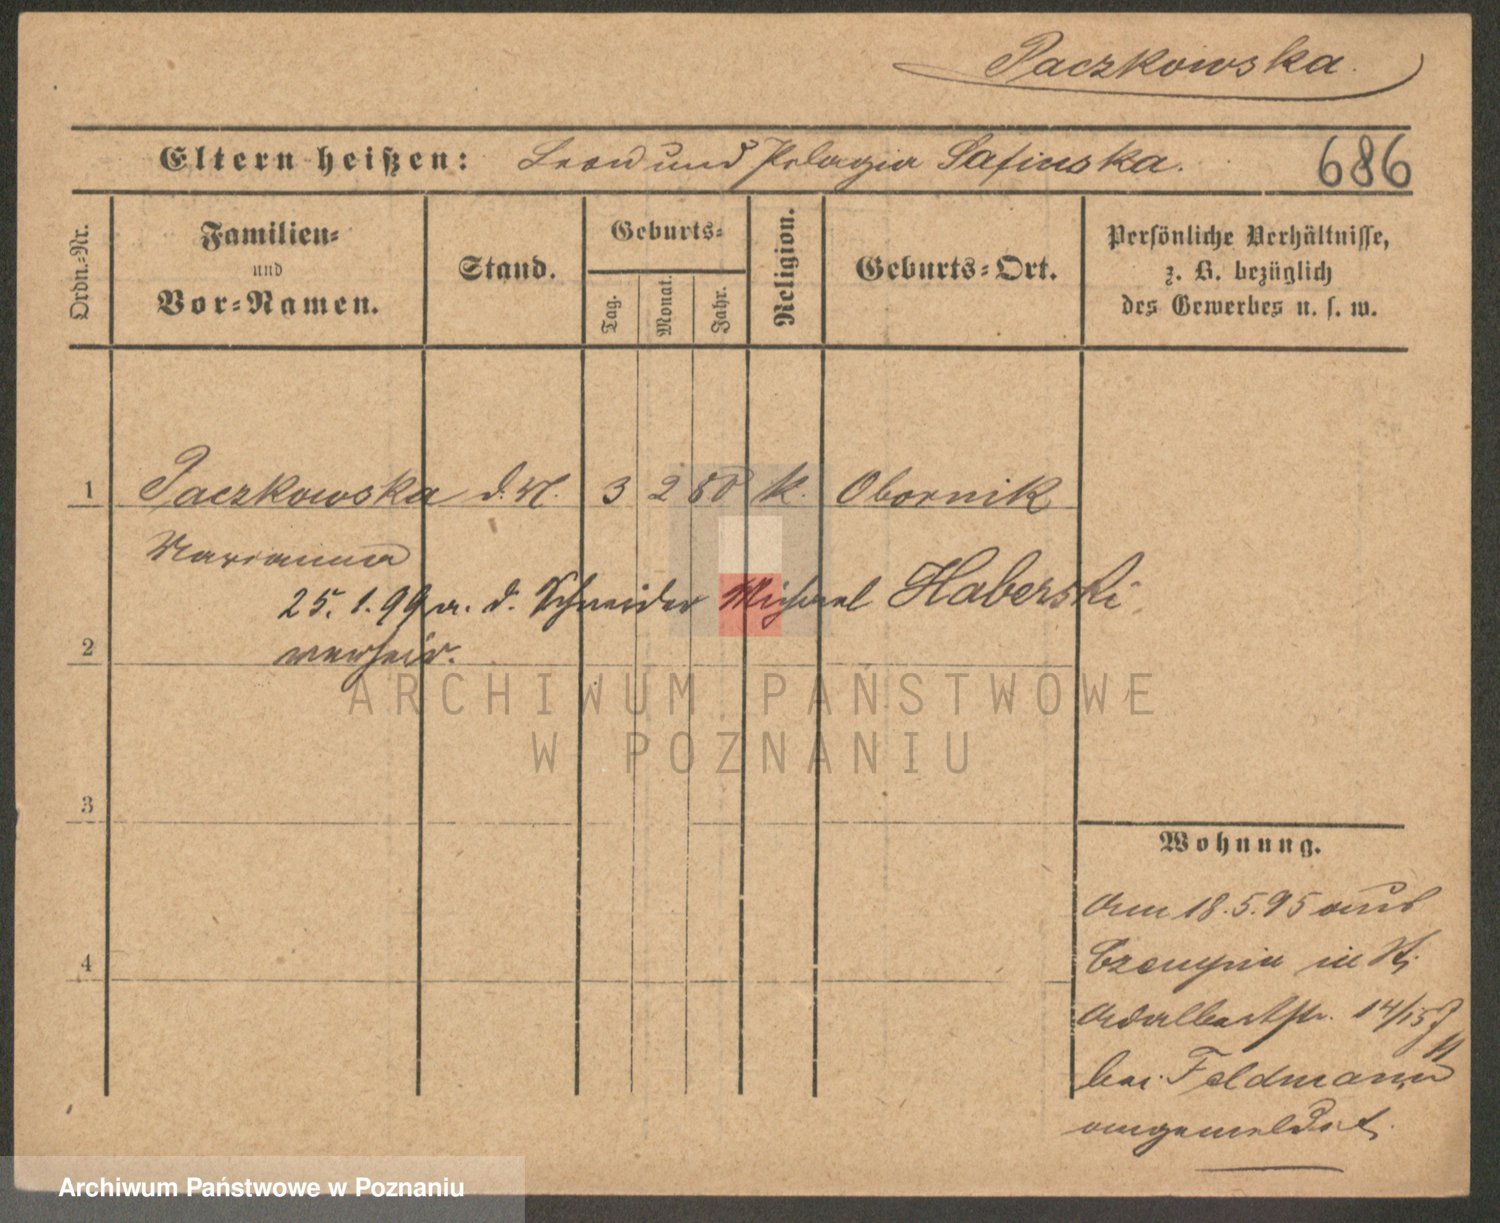 Paczkowska.
Eltern heißen: Leon und Pelagia Safinska.
686
Ordn.-Nr.
Familien-
und
Vor-Namen.
Stand.
Geburts-
Tag.
Monat.
Jahr.
Religion.
Geburts-Ort.
Persönliche Verhältnisse,
z. B. bezüglich
des Gewerbes u. s. w.
1 Paczkowska d. M. 3 2 80 k. Obornik
Marianna
25. 1. 99 m. d. Schneider Michael Haberski
verheir.
2
3
4
Wohnung.
Am 18.5.95 aus
Czempin in St.
Adalbertstr. 14/15
bei Feldmann
angemeldet.
ARCHIWUM PAŃSTWOWE
W POZNANIU
Archiwum Państwowe w Poznaniu